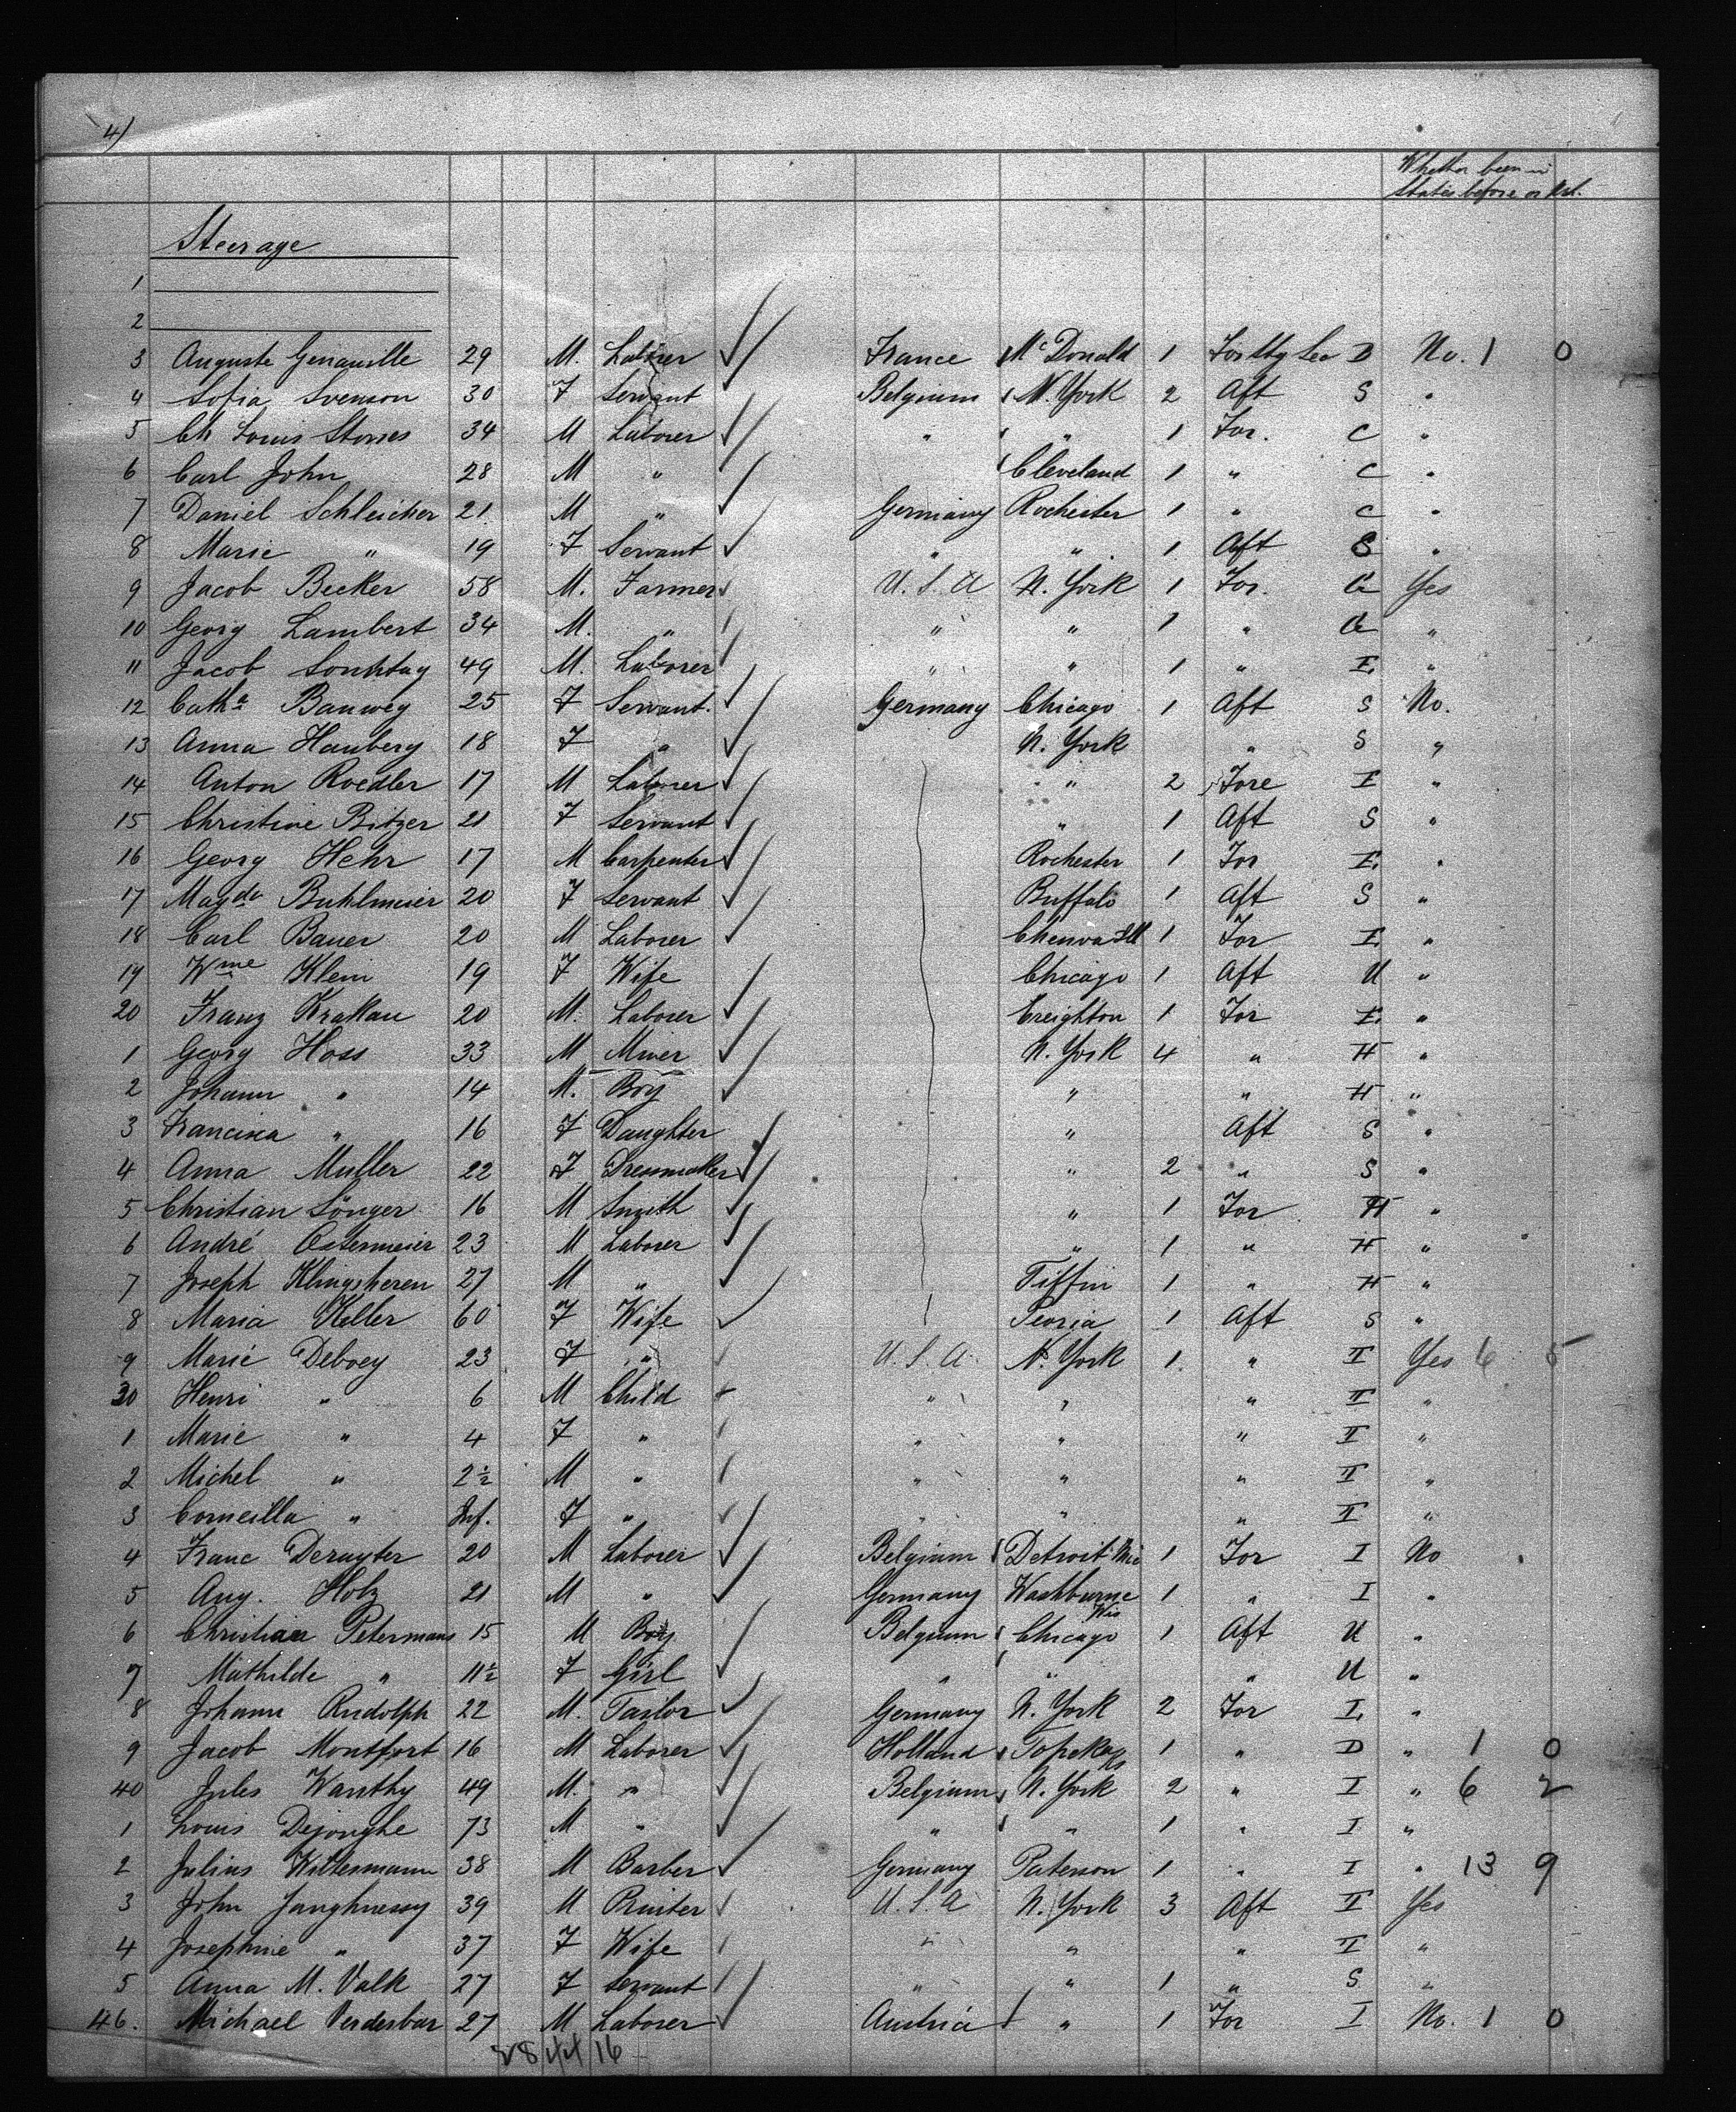 4)
Whether been in
States before or Not.
Steerage
1
2
3 Auguste Genauville 29 M. Laborer France McDonald 1 For Stg Sec D No. 1 0
4 Sofia Svenson 30 F Servant Belgium N. York 2 Aft S "
5 Ch Louis Stories 34 M Laborer " " 1 For. C "
6 Carl John 28 M " Cleveland 1 " C "
7 Daniel Schleicher 21 M " Germany Rochester 1 " C "
8 Marie " 19 F Servant " " 1 Aft S "
9 Jacob Becker 58 M. Farmer U. S. A N. York 1 For. Yes
10 Georg Lambert 34 M. " " " 1 " "
11 Jacob Sonntag 49 M. Laborer " " 1 " E. "
12 Catha Bauweg 25 F Servant. Germany Chicago 1 Aft S No.
13 Anna Hauberg 18 F " N. York " S "
14 Anton Roedler 17 M Laborer " 2 Fore E "
15 Christine Bitzer 21 F Servant " 1 Aft S "
16 Georg Hehr 17 M Carpenter Rochester 1 For E. "
17 Magda Buhlmeier 20 F Servant Buffalo 1 Aft S "
18 Carl Bauer 20 M Laborer Chenoa Ill 1 For E. "
19 Wme Klein 19 F Wife Chicago 1 Aft U "
20 Franz Krakau 20 M. Laborer Creighton 1 For E. "
1 Georg Hoss 33 M Miner N. York 4 " H "
2 Johann " 14 M. Boy " " H "
3 Francisca " 16 F Daughter " Aft S "
4 Anna Muller 22 F Dressmaker " 2 " S "
5 Christian Sönger 16 M Smith " 1 For H "
6 André Ostermeier 23 M Laborer " 1 " H "
7 Joseph Klingsheren 27 M " Tiffin 1 " H "
8 Maria Keller 60 F Wife Peoria 1 Aft S "
9 Marie Deboey 23 F " U. S. A. N. York 1. " II Yes 6 5
30 Henri " 6 M Child " " " II "
1 Marie " 4 F " " " " II "
2 Michel " 2½ M " " " " II "
3 Corneilla " Inf. F " " " " II "
4 Franc Deruyter 20 M Laborer Belgium Detroit Mic 1 For I No
5 Aug. Holz 21 M " Germany Washburne Wis 1 " I "
6 Christiaan Petermans 15 M Boy Belgium Chicago 1 Aft U "
7 Mathilde " 11½ F Girl " " " U "
8 Johann Rudolph 22 M. Tailor Germany N. York 2 For I. "
9 Jacob Montfort 16 M Laborer Holland Topeka Ks 1 " D " 1 0
40 Jules Wanthy 49 M. " Belgium N. York 2 " I " 6 2
1 Louis Dejonghe 73 M " " " 1 " I "
2 Julius Wittesmann 38 M Barber Germany Paterson 1 " I " 13 9
3 John Janghnessy 39 M Printer U. S. A N. York 3 Aft II Yes
4 Josephine " 37 F Wife " " " II "
5 Anna M. Valk 27 F Servant " " 1 " S "
46. Michael Verderbar 27 M Laborer Austria " 1 For I No. 1 0
28 44 16